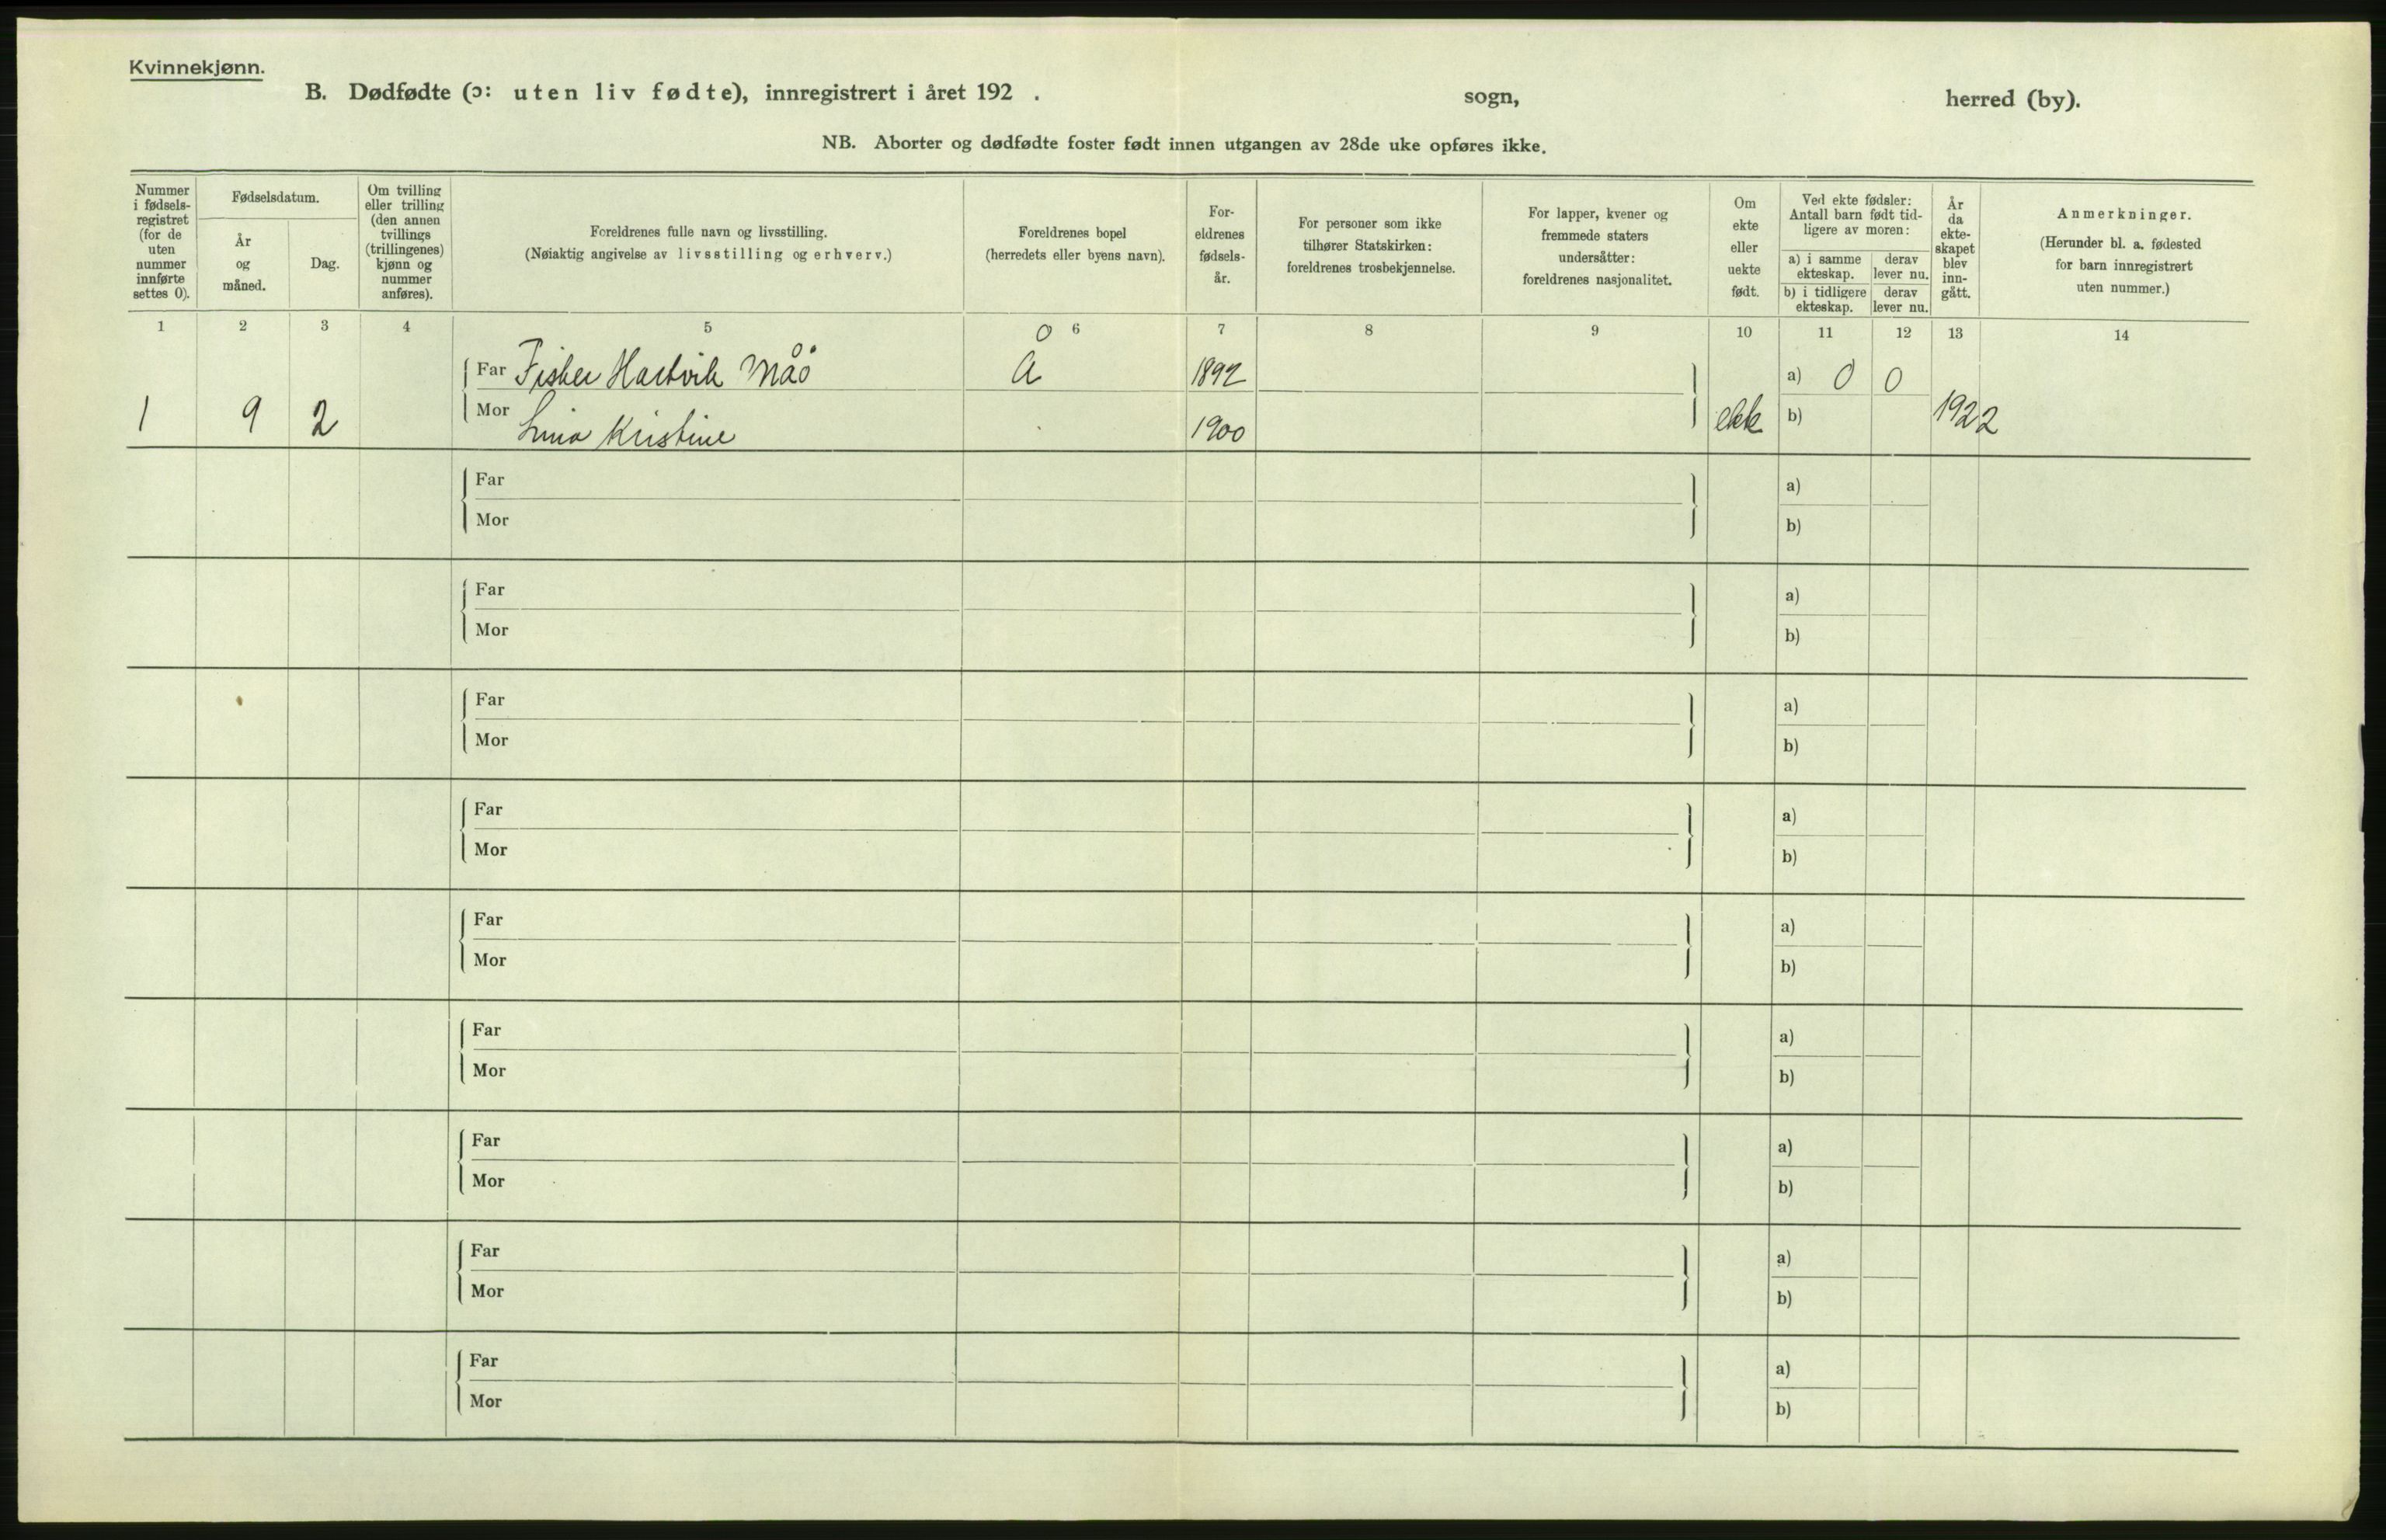 Kvinnekjønn.
B. Dødfødte (ɔ: uten liv fødte), innregistrert i året 192 . sogn, herred (by).
NB. Aborter og dødfødte foster født innen utgangen av 28de uke opføres ikke.
Nummer
i fødsels-
registret
(for de
uten
nummer
innførte
settes 0).
Fødselsdatum.
År
og
måned.
Dag.
Om tvilling
eller trilling
(den annen
tvillings
(trillingenes)
kjønn og
nummer
anføres).
Foreldrenes fulle navn og livsstilling.
(Nøiaktig angivelse av livsstilling og erhverv.)
Foreldrenes bopel
(herredets eller byens navn).
For-
eldrenes
fødsels-
år.
For personer som ikke
tilhører Statskirken:
foreldrenes trosbekjennelse.
For lapper, kvener og
fremmede staters
undersåtter:
foreldrenes nasjonalitet.
Om
ekte
eller
uekte
født.
Ved ekte fødsler:
Antall barn født tid-
ligere av moren:
a) i samme
ekteskap.
derav
lever nu.
b) i tidligere
ekteskap.
derav
lever nu.
År
da
ekte-
skapet
blev
inn-
gått.
Anmerkninger.
(Herunder bl. a. fødested
for barn innregistrert
uten nummer.)
1 2 3 4 5 6 7 8 9 10 11 12 13 14
Far Fisker Hartvik Måö Å 1892 a) 0 0
1 9 2 Mor Lina Kristine 1900 ekte b) 1922
Far a)
Mor b)
Far a)
Mor b)
Far a)
Mor b)
Far a)
Mor b)
Far a)
Mor b)
Far a)
Mor b)
Far a)
Mor b)
Far a)
Mor b)
Far a)
Mor b)